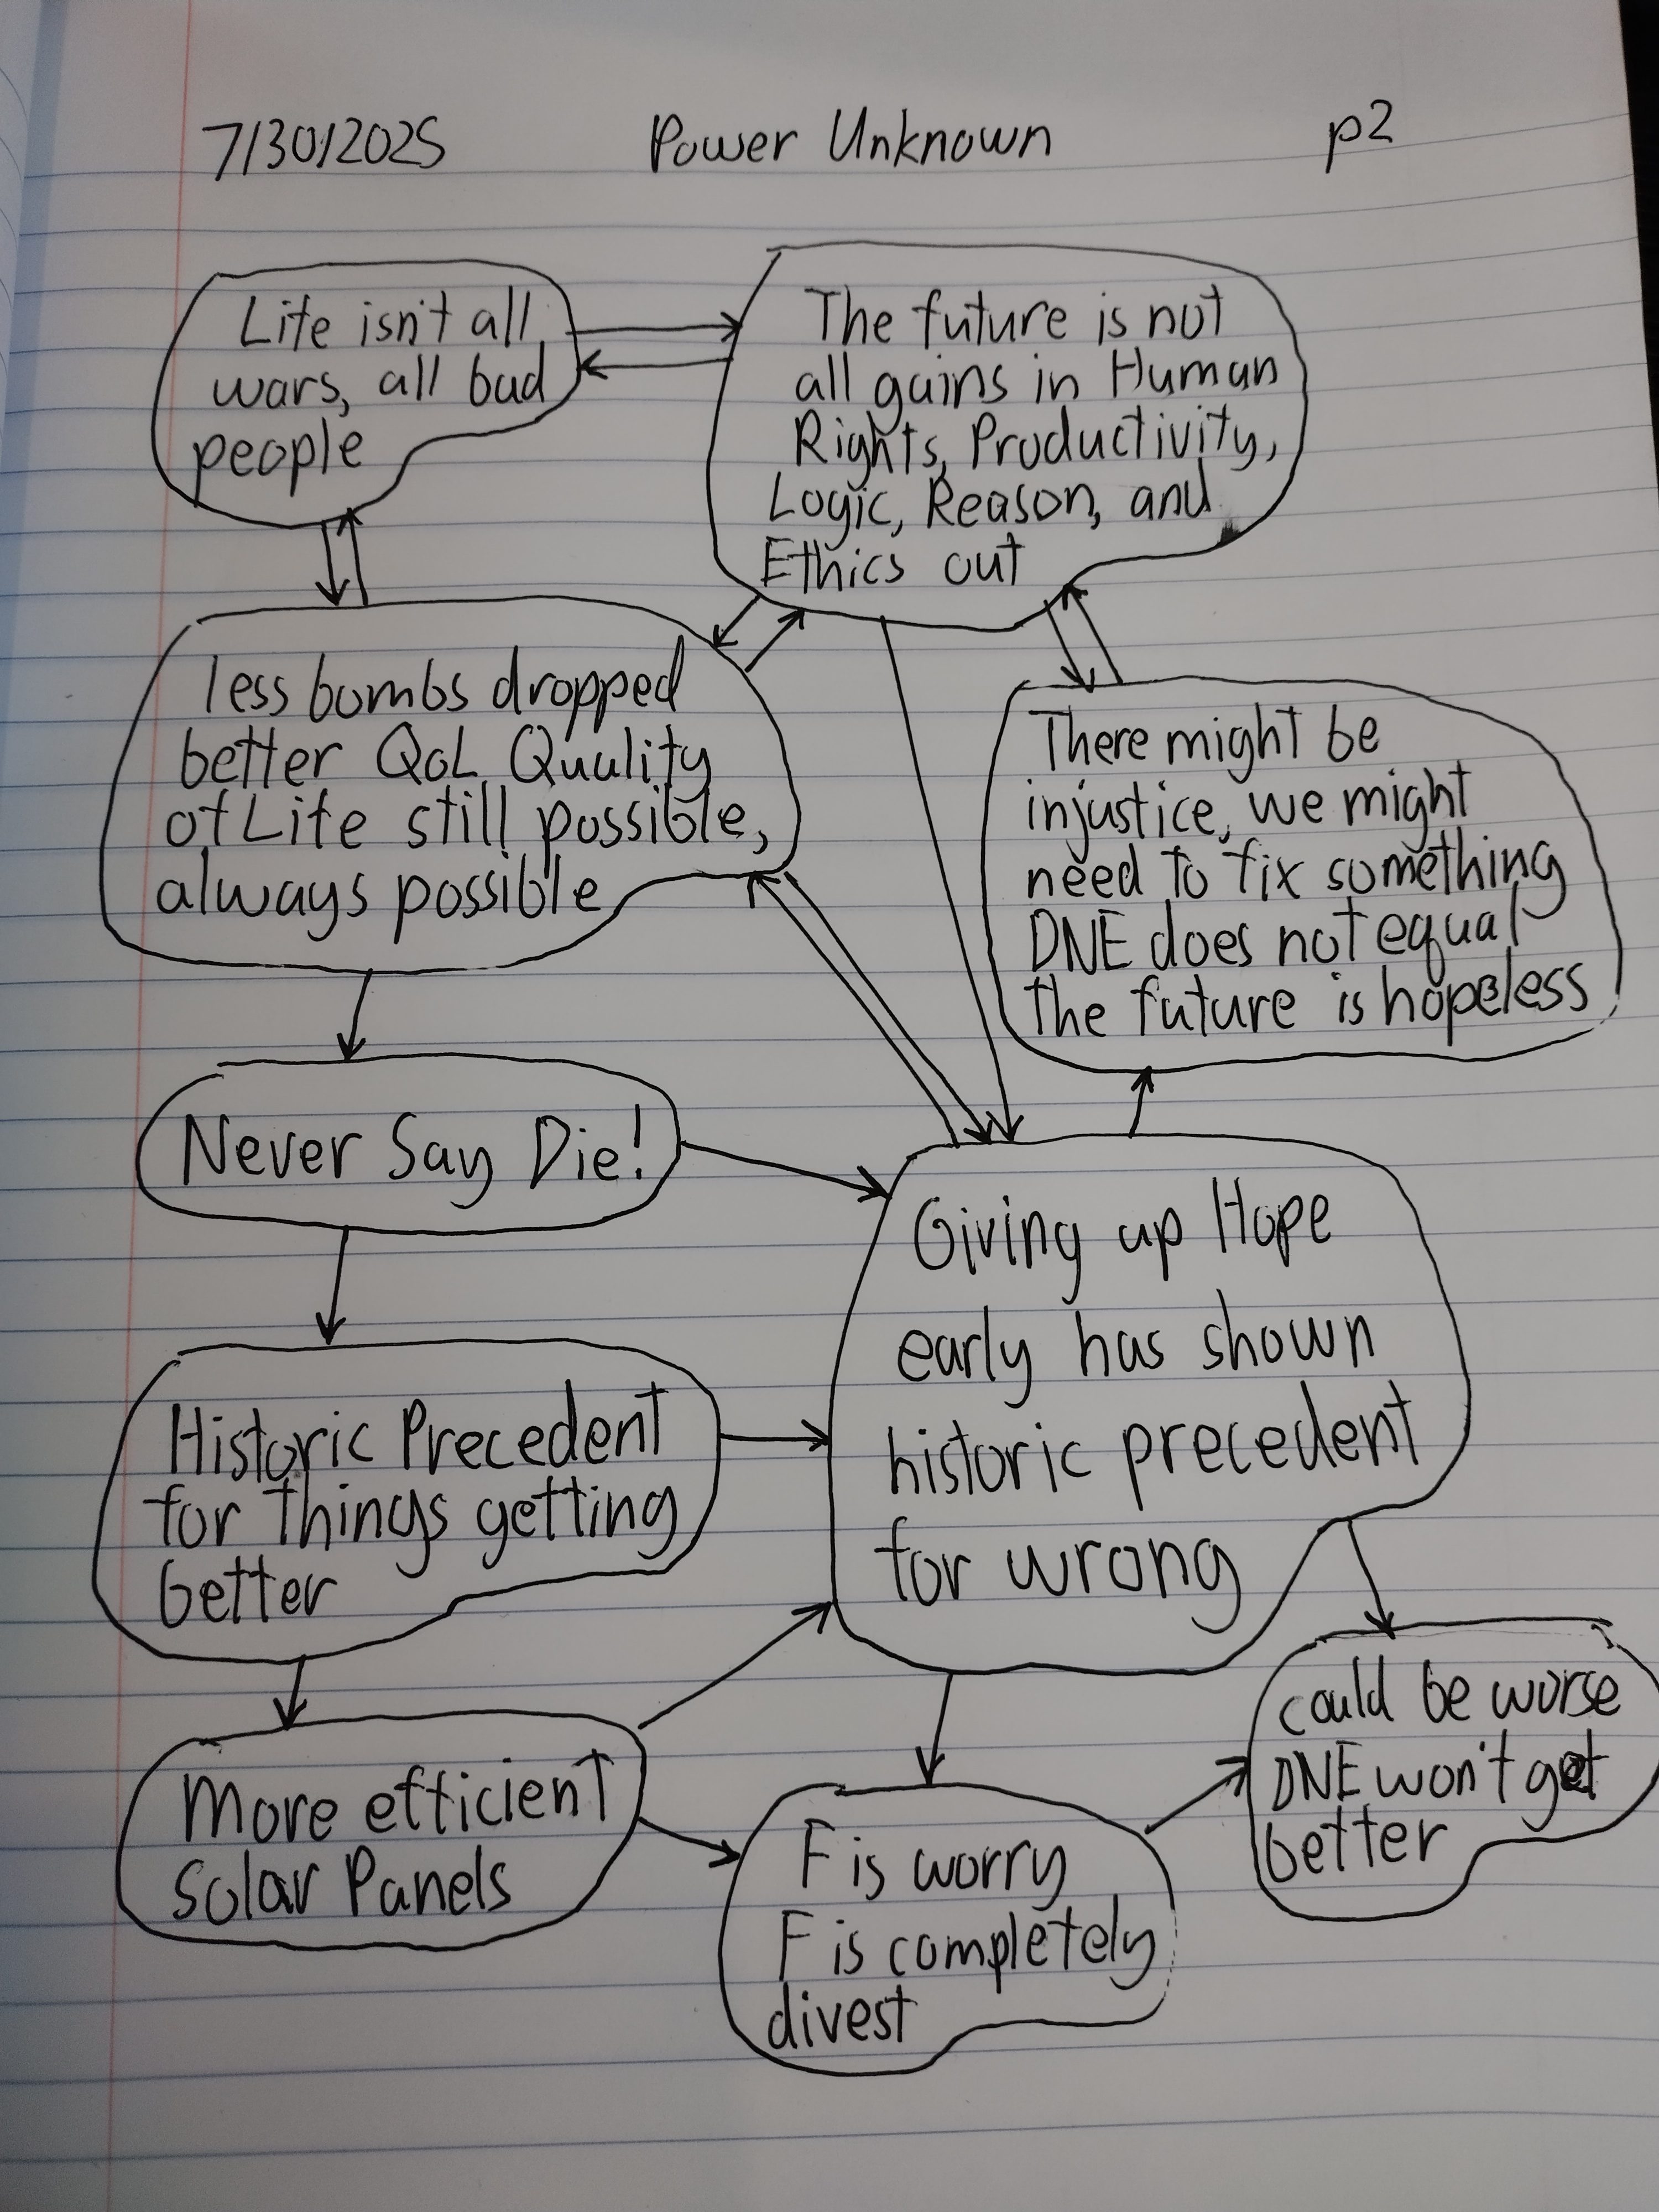 7/30/2025 Power Unknown p2
Life isn't all
wars, all bad
people
The future is not
all gains in Human
Rights, Productivity,
Logic, Reason, and
Ethics out
less bombs dropped
better QoL Quality
of Life still possible,
always possible
There might be
injustice, we might
need to fix something
DNE does not equal
the future is hopeless
Never Say Die!
Giving up Hope
early has shown
historic precedent
for wrong
Historic Precedent
for things getting
better
More efficient
Solar Panels
F is worry
F is completely
divest
could be worse
DNE won't get
better